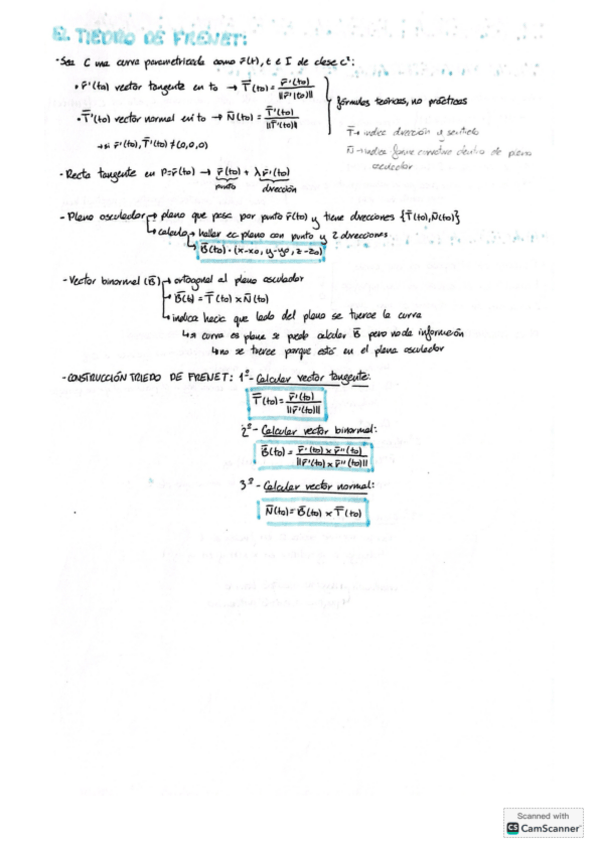 EL TIEDRO DE FRENET:
·Sea C una curva parametrizada como r̄(t), t ∈ I de clase C¹:
• r̄'(to) vector tangente en to → T̄(to) = r̄'(to) / ||r̄'(to)||
• T̄'(to) vector normal en to → N̄(to) = T̄'(to) / ||T̄'(to)||
fórmulas teóricas, no prácticas
→ si r̄'(to), T̄'(to) ≠ (0,0,0)
T̄→ indica dirección y sentido
N̄→ indica forma convexa dentro de plano
osculador
- Recta tangente en P=r̄(to) → r̄(to) + λr̄'(to)
punto dirección
- Plano osculador → plano que pasa por punto r̄(to) y tiene direcciones {T̄(to), N̄(to)}
→ calculo → hallar ec plano con punto y 2 direcciones
→ B̄(to) · (x-xo, y-yo, z-zo)
- Vector binormal (B̄) → ortogonal al plano osculador
→ B̄(t) = T̄(to) x N̄(to)
→ indica hacia que lado del plano se tuerce la curva
↳ si curva es plana se puede calcular B̄ pero no da información
↳ no se tuerce porque está en el plano osculador
- CONSTRUCCIÓN TRIEDO DE FRENET: 1º- Calcular vector tangente:
T̄(to) = r̄'(to) / ||r̄'(to)||
2º- Calcular vector binormal:
B̄(to) = r̄'(to) x r̄''(to) / ||r̄'(to) x r̄''(to)||
3º- Calcular vector normal:
N̄(to) = B̄(to) x T̄(to)
Scanned with
CS CamScanner